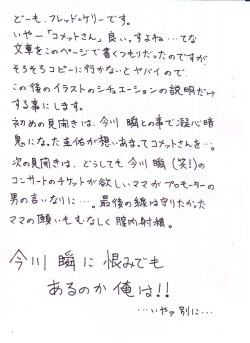 どーも、フレッド・ケリーです。
いやー「コメットさん」良い。すよね…てな
文章をこのページで書くつもりだったのですが
そろそろコピーに行かないとヤバイので、
この後のイラストのシチュエーションの説明だけ
する事にします。
初めの見開きは、今川 瞬との事で疑心暗
鬼になった圭佑が想いあまってコメットさんを…。
次の見開きは、どうしても今川 瞬(笑!)の
コンサートのチケットが欲しいママがプロモーターの
男の言いなりに…。最後の線は守りたかった
ママの願いもむなしく膣内射精。
今川 瞬に恨みでも
あるのか俺は!!
…いやァ別に…